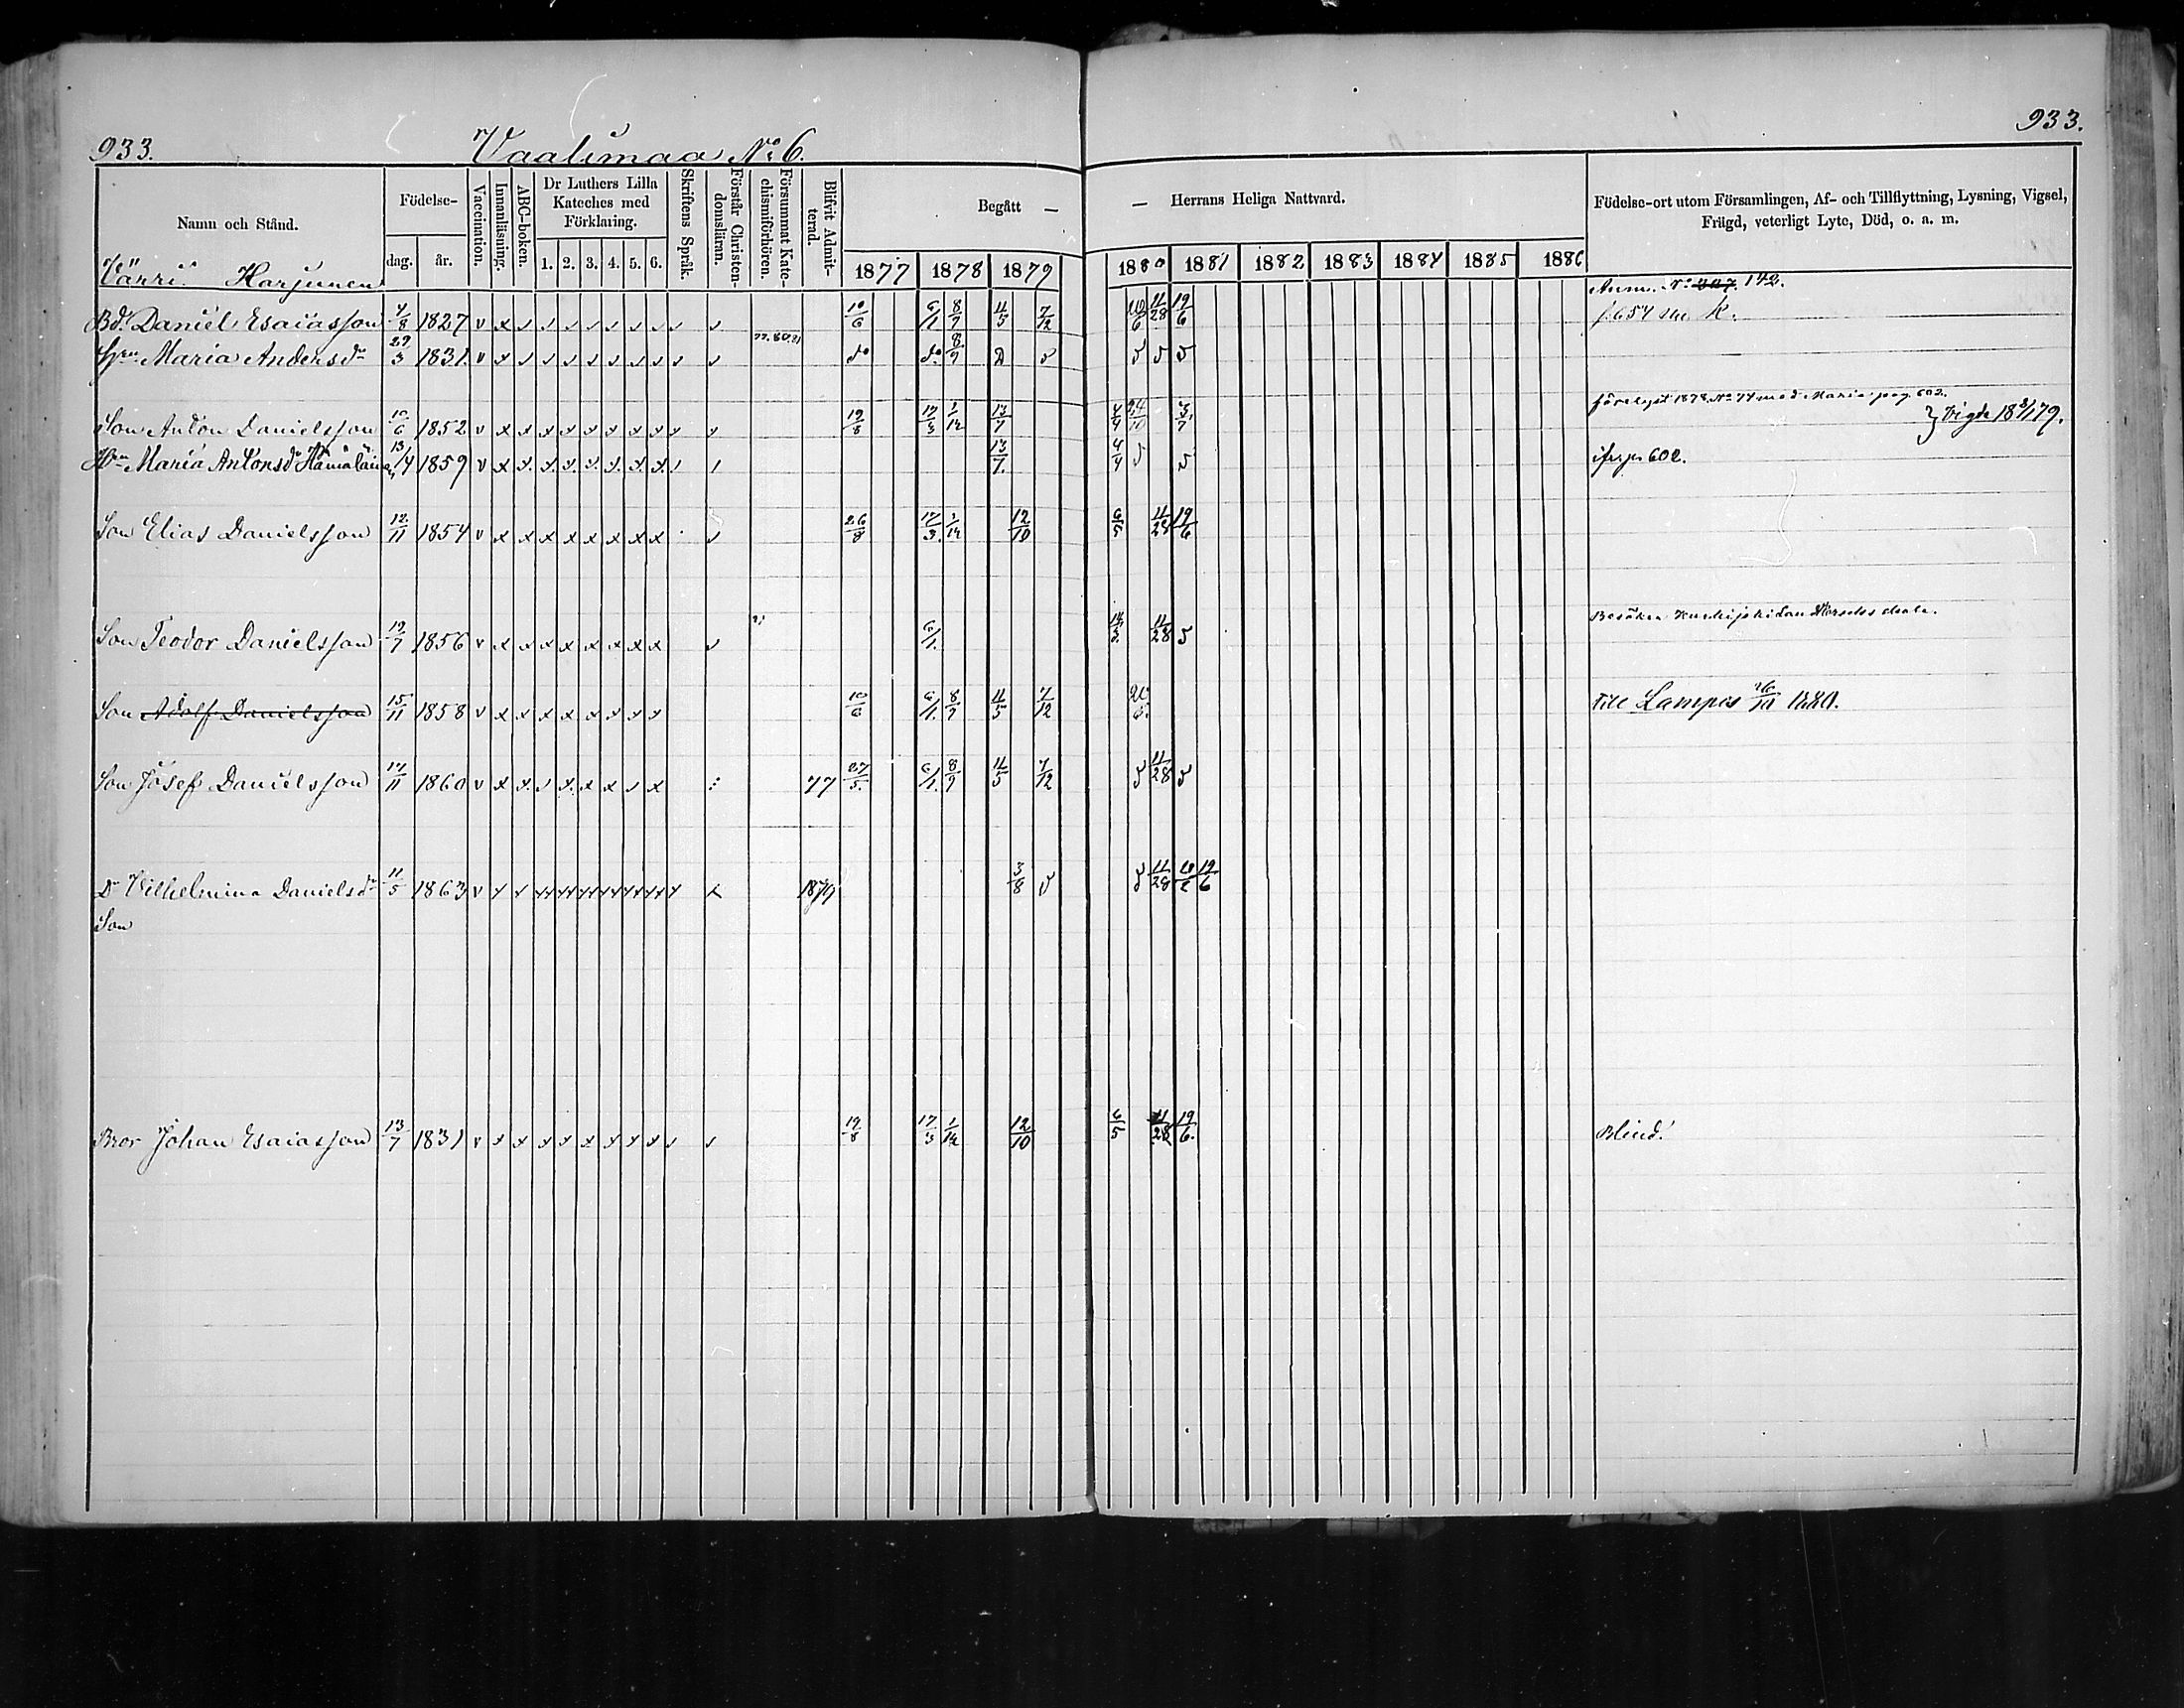 933.
Vaalimaa No 6.
933.
Namn och Stånd.
Födelse-
dag.
år.
Vaccination.
Innanläsning.
ABC-boken.
Dr Luthers Lilla Kateches med Förklaring.
1. 2. 3. 4. 5. 6.
Skriftens Språk.
Förstår Christendomsläran.
Försummat Katechismiförhören.
Blifvit Admitterad.
Begått —
— Herrans Heliga Nattvard.
1877 1878 1879
1880 1881 1882 1883 1884 1885 1886
Födelse-ort utom Församlingen, Af- och Tillflyttning, Lysning, Vigsel,
Frägd, veterligt Lyte, Död, o. a. m.
Harjunen
Anm. No 142.
Daniel Esaiasson 4/8 1827 v x 10/6 6/1 8/9 4/5 7/12 11/28 19/6
Maria Andersdr 29/3 1831. v x do do 8/9
Son Anton Danielsson 10/6 1852 v x x x x x x x x 19/8 17/3 1/12 13/7 4/4 24/10 3/7 Vigde 18 3/1 79.
Maria Antonsdr 13/4 1859 v x x x x x x x x 13/7. 4/4 602.
Son Elias Danielsson 12/11 1854 v x x x x x x x x 26/8 17/3. 1/12 12/10 6/5 11/28 19/6
Son Teodor Danielsson 19/7 1856 v x x x x x x x x 6/1. 14/3. 11/28
Son Adolf Danielsson 15/11 1858 v x x x x x x x x 10/6 6/1. 8/9 4/5 7/12 till Lampis 26/10 1880.
Son Josef Danielsson 17/11 1860 v x x 77 27/5. 6/1. 8/9 4/5 7/12 11/28
Dr Vilhelmina Danielsdr 11/5 1863 v 1879 3/8 11/28 19/6
Son
Bror Johan Esaiasson 13/7 1831 v x x x x x x x x 19/8 17/3 1/12 12/10 6/5 11/28 19/6. Blind.